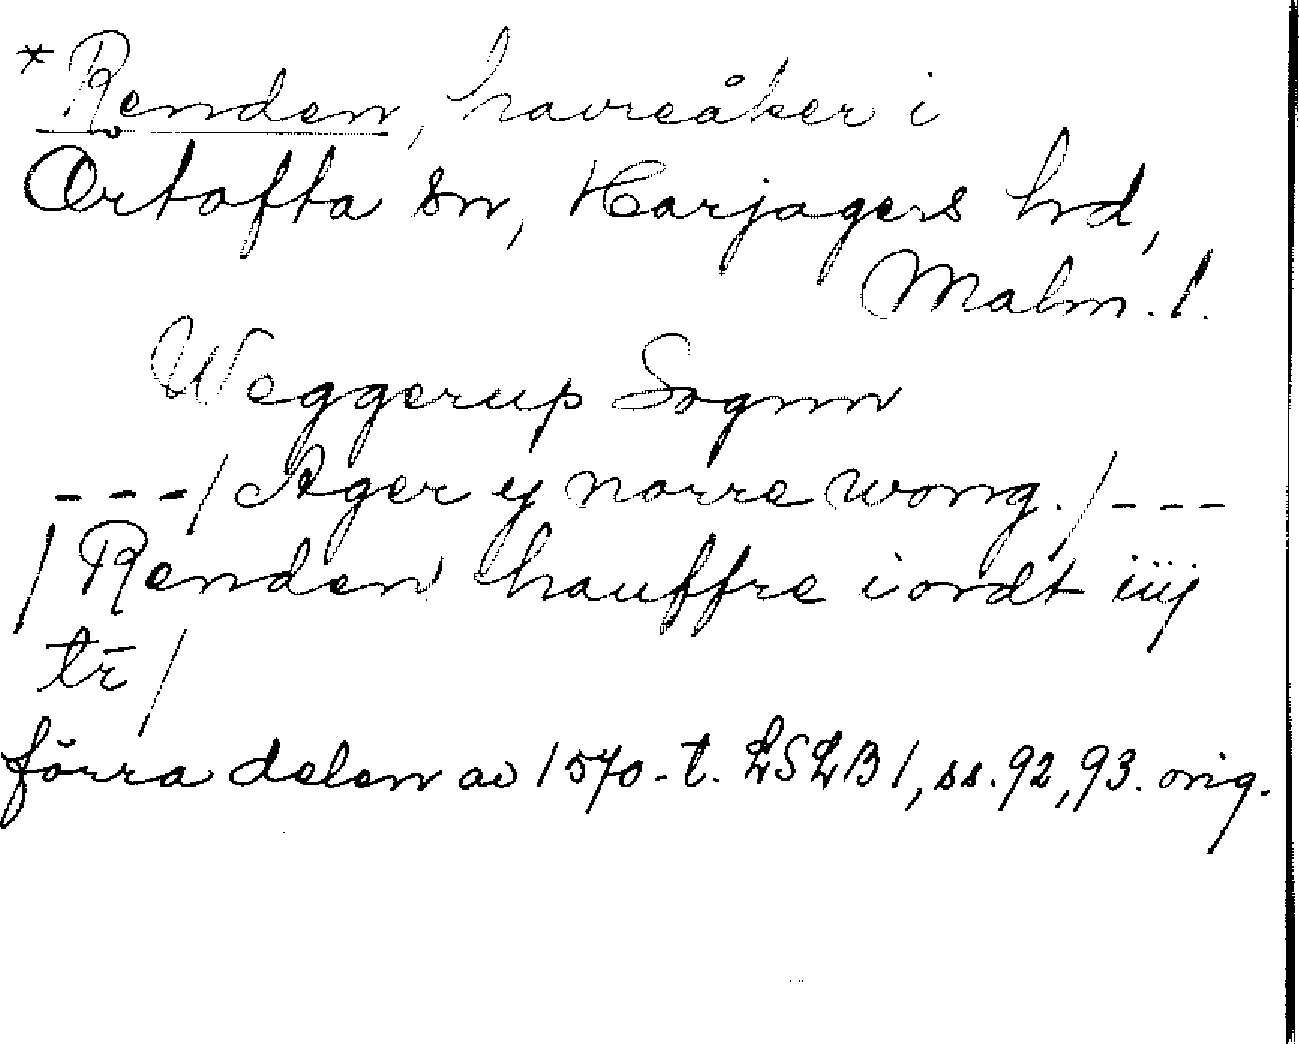 *Renden, havreåker i
Örtofta sn, Harjagers hd,
Malm. l.
Weggerup Sognn
---/ Ager y norre wong. /---
/ Renden hauffre iordt iiij
tr̄ /
förra delen av 1570-t. LSLB 1, ss. 92, 93. orig.